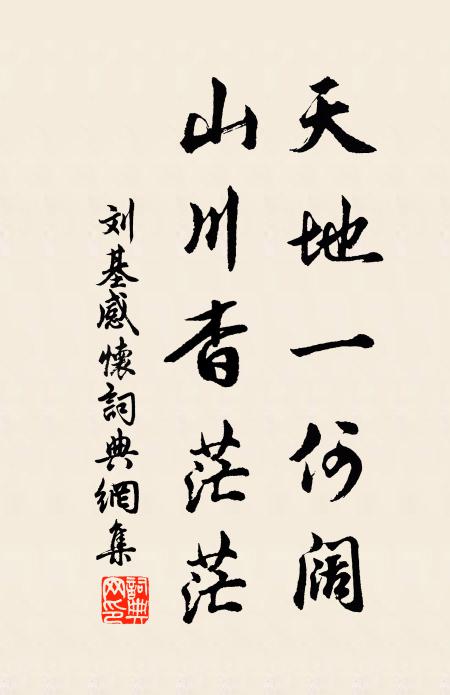 天地一何阔
山川杳茫茫
刘基感懷詞典網集
詞典網印